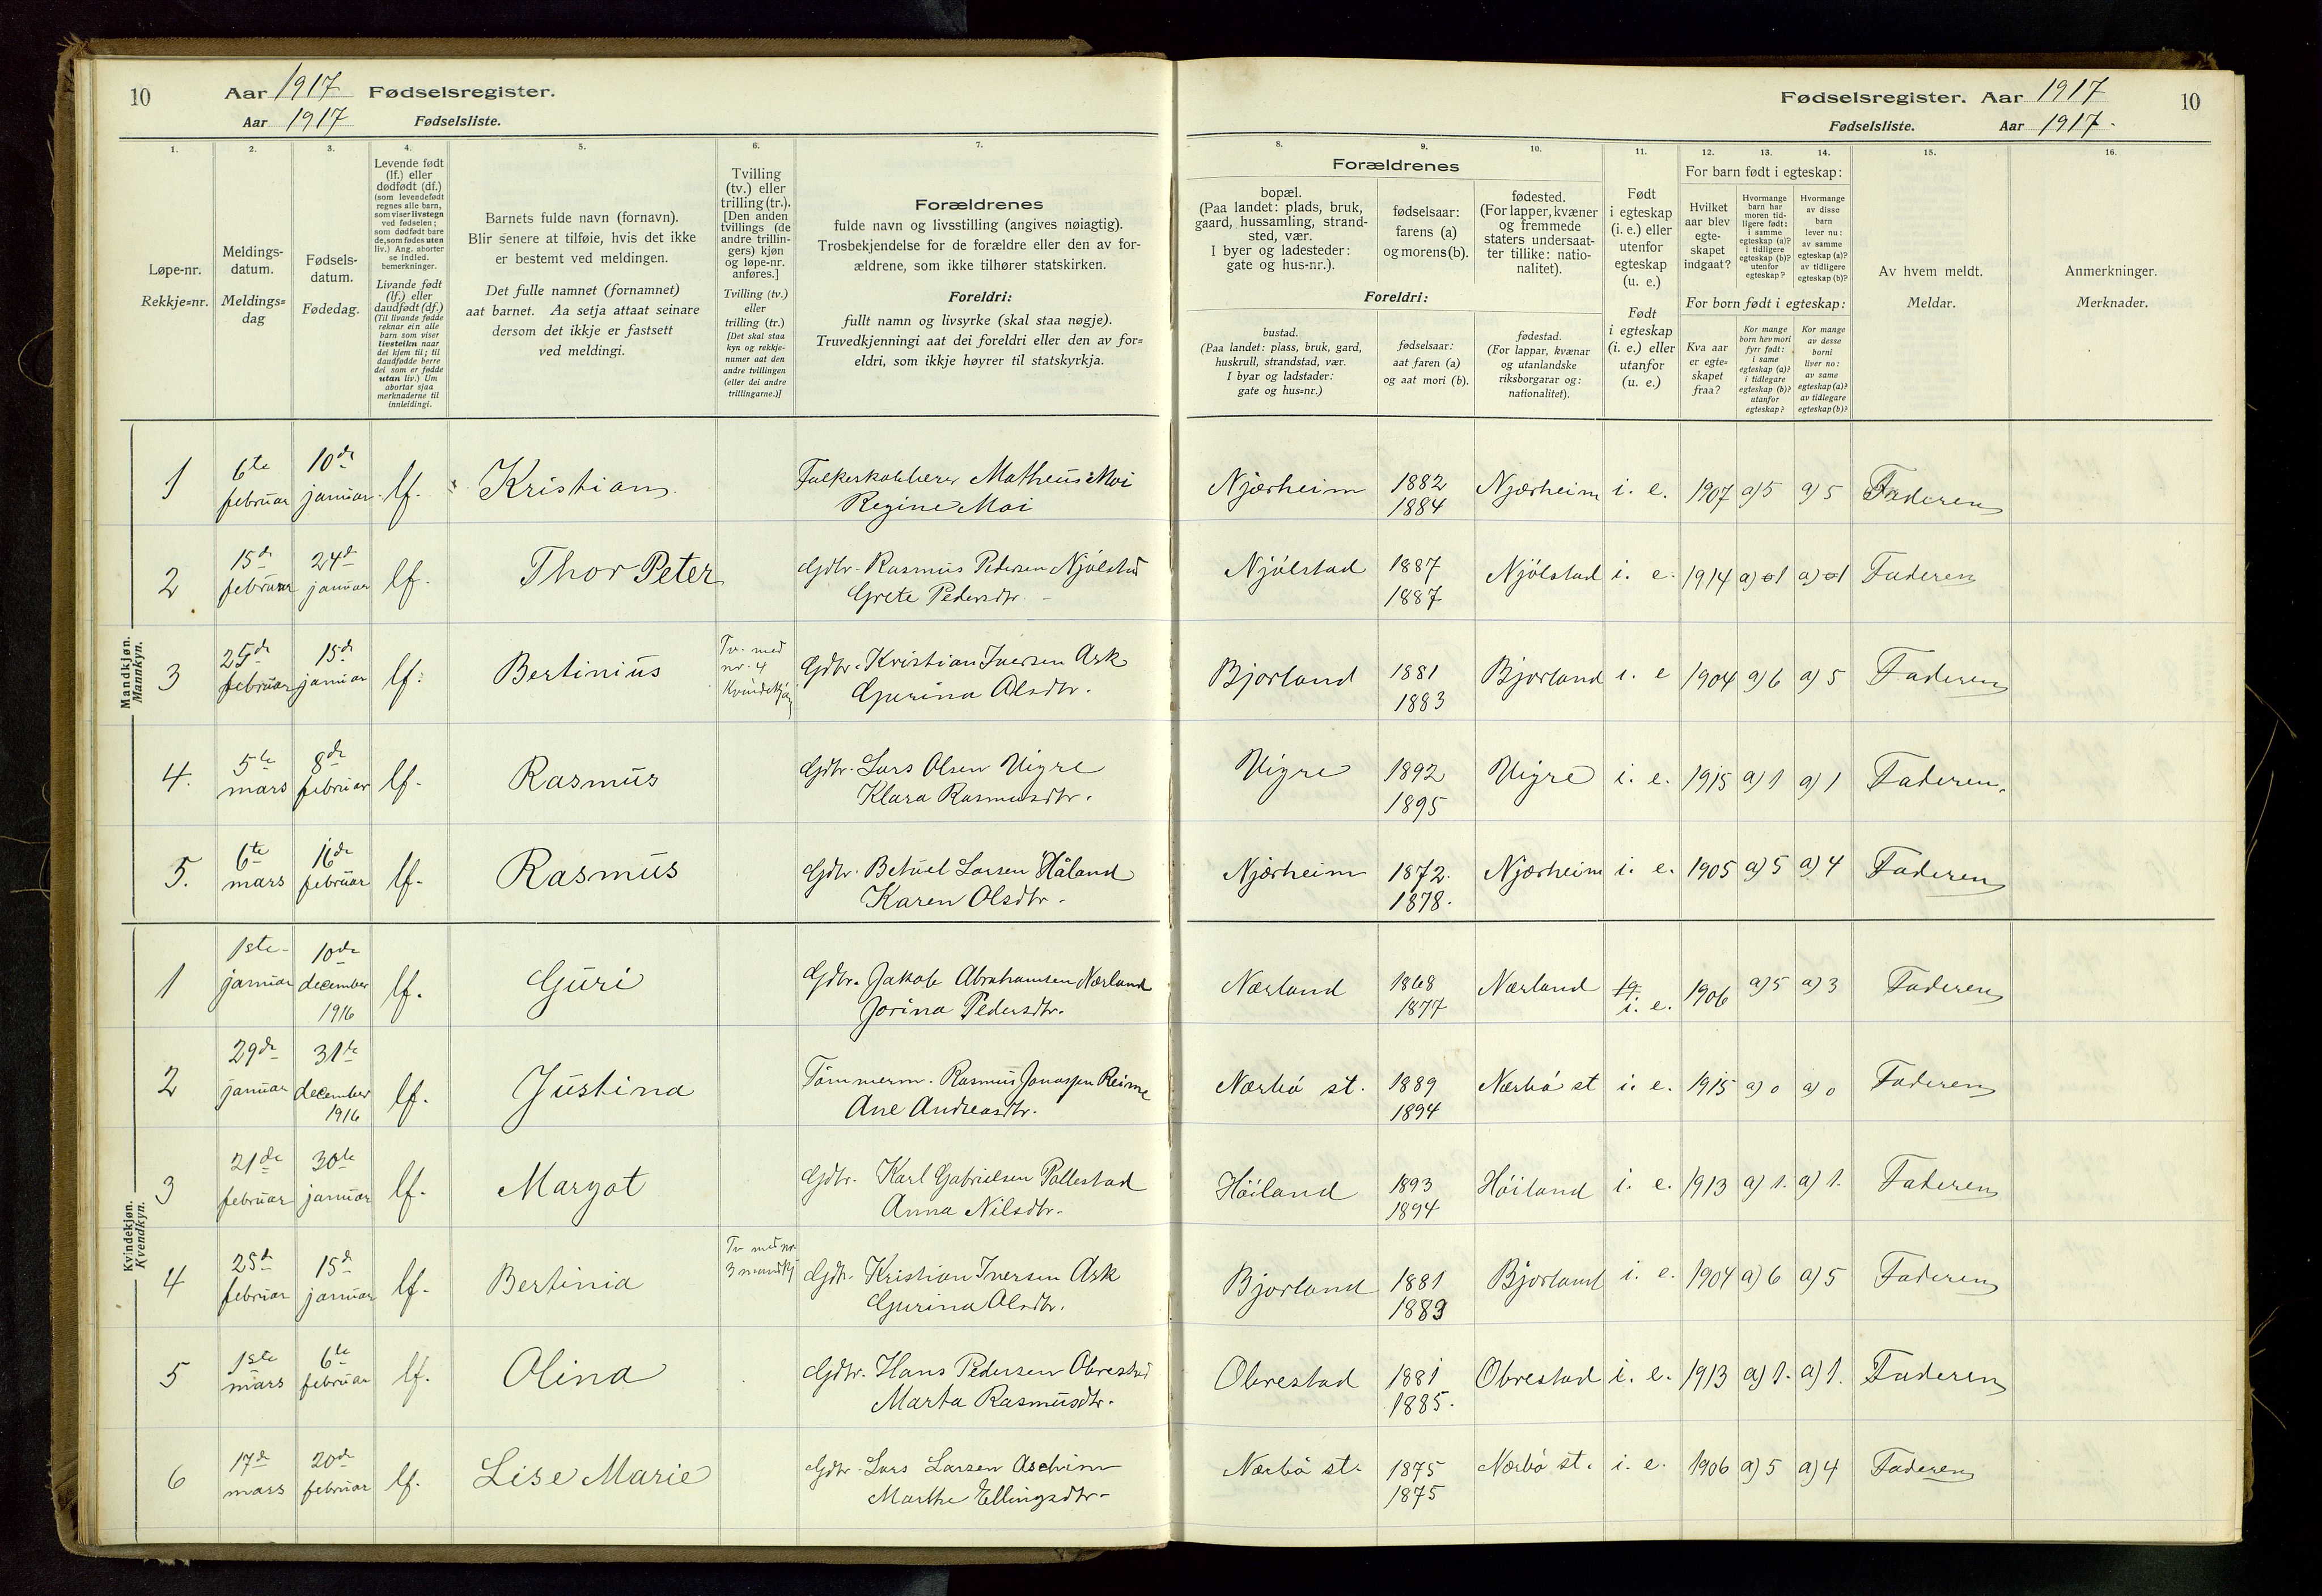 10
Aar 1917 Fødselsregister.
Aar 1917 Fødselsliste.
Fødselsregister. Aar 1917
10
Fødselsliste. Aar 1917.
1.
Løpe-nr.
Rekkje=nr.
2.
Meldings-
datum.
Meldings=
dag
3.
Fødsels-
datum.
Fødedag.
4.
Levende født
(lf.) eller
dødfødt (df.)
(som levendefødt
regnes alle barn,
som viser livstegn
ved fødselen;
som dødfødt bare
de, som fødes uten
liv.) Ang. aborter
se indled.
bemerkninger.
Livande født
(lf.) eller
daudfødt (df.)
(Til livande fødde
reknar ein alle
barn som viser
livsteikn naar
dei kjem til; til
daudfødde berre
dei som er fødde
utan liv.) Um
abortar sjaa
merknaderne til
innleidingi.
5.
Barnets fulde navn (fornavn).
Blir senere at tilføie, hvis det ikke
er bestemt ved meldingen.
Det fulle namnet (fornamnet)
aat barnet. Aa setja attaat seinare
dersom det ikkje er fastsett
ved meldingi.
6.
Tvilling
(tv.) eller
trilling (tr.).
[Den anden
tvillings (de
andre trillin-
gers) kjøn
og løpe-nr.
anføres.]
Tvilling (tv.)
eller
trilling (tr.)
[Det skal staa
kyn og rekkje-
numer aat den
andre tvillingen
(eller dei andre
trillingarne.)]
7.
Forældrenes
fulde navn og livsstilling (angives nøiagtig).
Trosbekjendelse for de forældre eller den av for-
ældrene, som ikke tilhører statskirken.
Foreldri:
fullt namn og livsyrke (skal staa nøgje).
Truvedkjenningi aat dei foreldri eller den av for=
eldri, som ikkje høyrer til statskyrkja.
8.
Forældrenes
bopæl.
(Paa landet: plads, bruk,
gaard, hussamling, strand-
sted, vær.
I byer og ladesteder:
gate og hus-nr.).
Foreldri:
bustad.
(Paa landet: plass, bruk, gard,
huskrull, strandstad, vær.
I byar og ladstader:
gate og hus-nr.)
9.
fødselsaar:
farens (a)
og morens (b).
fødselsaar:
aat faren (a)
og aat mori (b).
10.
fødested.
(For lapper, kvæner
og fremmede
staters undersaat-
ter tillike: natio-
nalitet).
fødestad.
(For lappar, kvænar
og utanlandske
riksborgarar og:
nationalitet).
11.
Født
i egteskap
(i. e.) eller
utenfor
egteskap
(u. e.)
Født
i egteskap
(i. e.) eller
utanfor
(u. e.)
12. 13. 14.
For barn født i egteskap:
Hvilket
aar blev
egte-
skapet
indgaat?
Hvormange
barn har
moren tid-
ligere født:
i samme
egteskap (a)?
i tidligere
egteskap (b)?
utenfor
egteskap?
Hvormange
av disse
barn
lever nu:
av samme
egteskap (a)?
av tidligere
egteskap (b)?
For born født i egteskap:
Kva aar
er egte=
skapet
fraa?
Kor mange
born hev mori
fyrr født:
i same
egteskap (a)?
i tidlegare
egteskap (b)?
utanfor
egteskap?
Kor mange
av desse
borni
liver no:
av same
egteskap (a)?
av tidlegare
egteskap (b)?
15.
Av hvem meldt.
Meldar.
16.
Anmerkninger.
Merknader.
Mandkjøn.
Mannkyn.
1 6te februar 10de januar lf. Kristian Matheus Moi
Regine Moi Njærheim 1882 1884 Njærheim i. e. 1907 a)5 a)5 Faderen
2 15de februar 24de januar lf. Thor Peter Gdbr. Rasmus Pedersen Njölstad
Grete Pedersdtr. Njölstad 1887 1887 Njölstad i. e. 1914 a) 1 a) 1 Faderen
3 25de februar 15de januar lf. Bertinius Tv. med nr. 4 Kvindekjøn Gdbr. Kristian Iversen Ask
Gurina Olsdtr. Bjorland 1881 1883 Bjorland i. e 1904 a) 6 a) 5 Faderen
4. 5te mars 8de februar lf. Rasmus Gdbr. Lars Olsen Vigre
Klara Rasmusdtr. Vigre 1892 1895 Vigre i. e. 1915 a) 1 a) 1 Faderen.
5. 6te mars 16de februar lf. Rasmus Gdbr. Betuel Larsen Håland
Karen Olsdtr. Njærheim 1872. 1878. Njærheim i. e. 1905 a) 5 a) 4 Faderen
Kvindekjøn.
Kvendkyn.
1 1ste januar 10de december 1916 lf. Guri Gdbr. Jakob Abrahamsen Nærland
Jorina Pedersdtr. Nærland 1868 1877 Nærland i. e. 1906 a)5 a)3 Faderen
2 29de januar 31te december 1916 lf. Justina Tömmerm. Rasmus Jonassen Reime
Ane Andreasdtr. Nærbö st. 1889 1894 Nærbö st i. e. 1915 a) 0 a) 0 Faderen
3 21de februar 30te januar lf. Margot Gdbr. Karl Gabrielsen Pollestad
Anna Nilsdtr. Höiland 1893 1894 Höiland i. e. 1913 a) 1. a) 1. Faderen
4 25de februar 15de januar lf. Bertinia Tv med nr 3 mandkj Gdbr. Kristian Iversen Ask
Gurina Olsdtr. Bjorland 1881 1883 Bjorland i. e. 1904 a) 6 a) 5 Faderen
5 1ste mars 6te februar lf. Olina Gdbr. Hans Pedersen Obrestad
Marta Rasmusdtr. Obrestad 1881 1885. Obrestad i. e. 1913 a) 1. a) 1. Faderen
6 17de mars 20de februar lf. Lise Marie Gdbr. Lars Larsen Aschim
Marthe Ellingsdtr. Nærbö st. 1875 1875 Nærbö st. i. e. 1906 a) 5 a) 4 Faderen